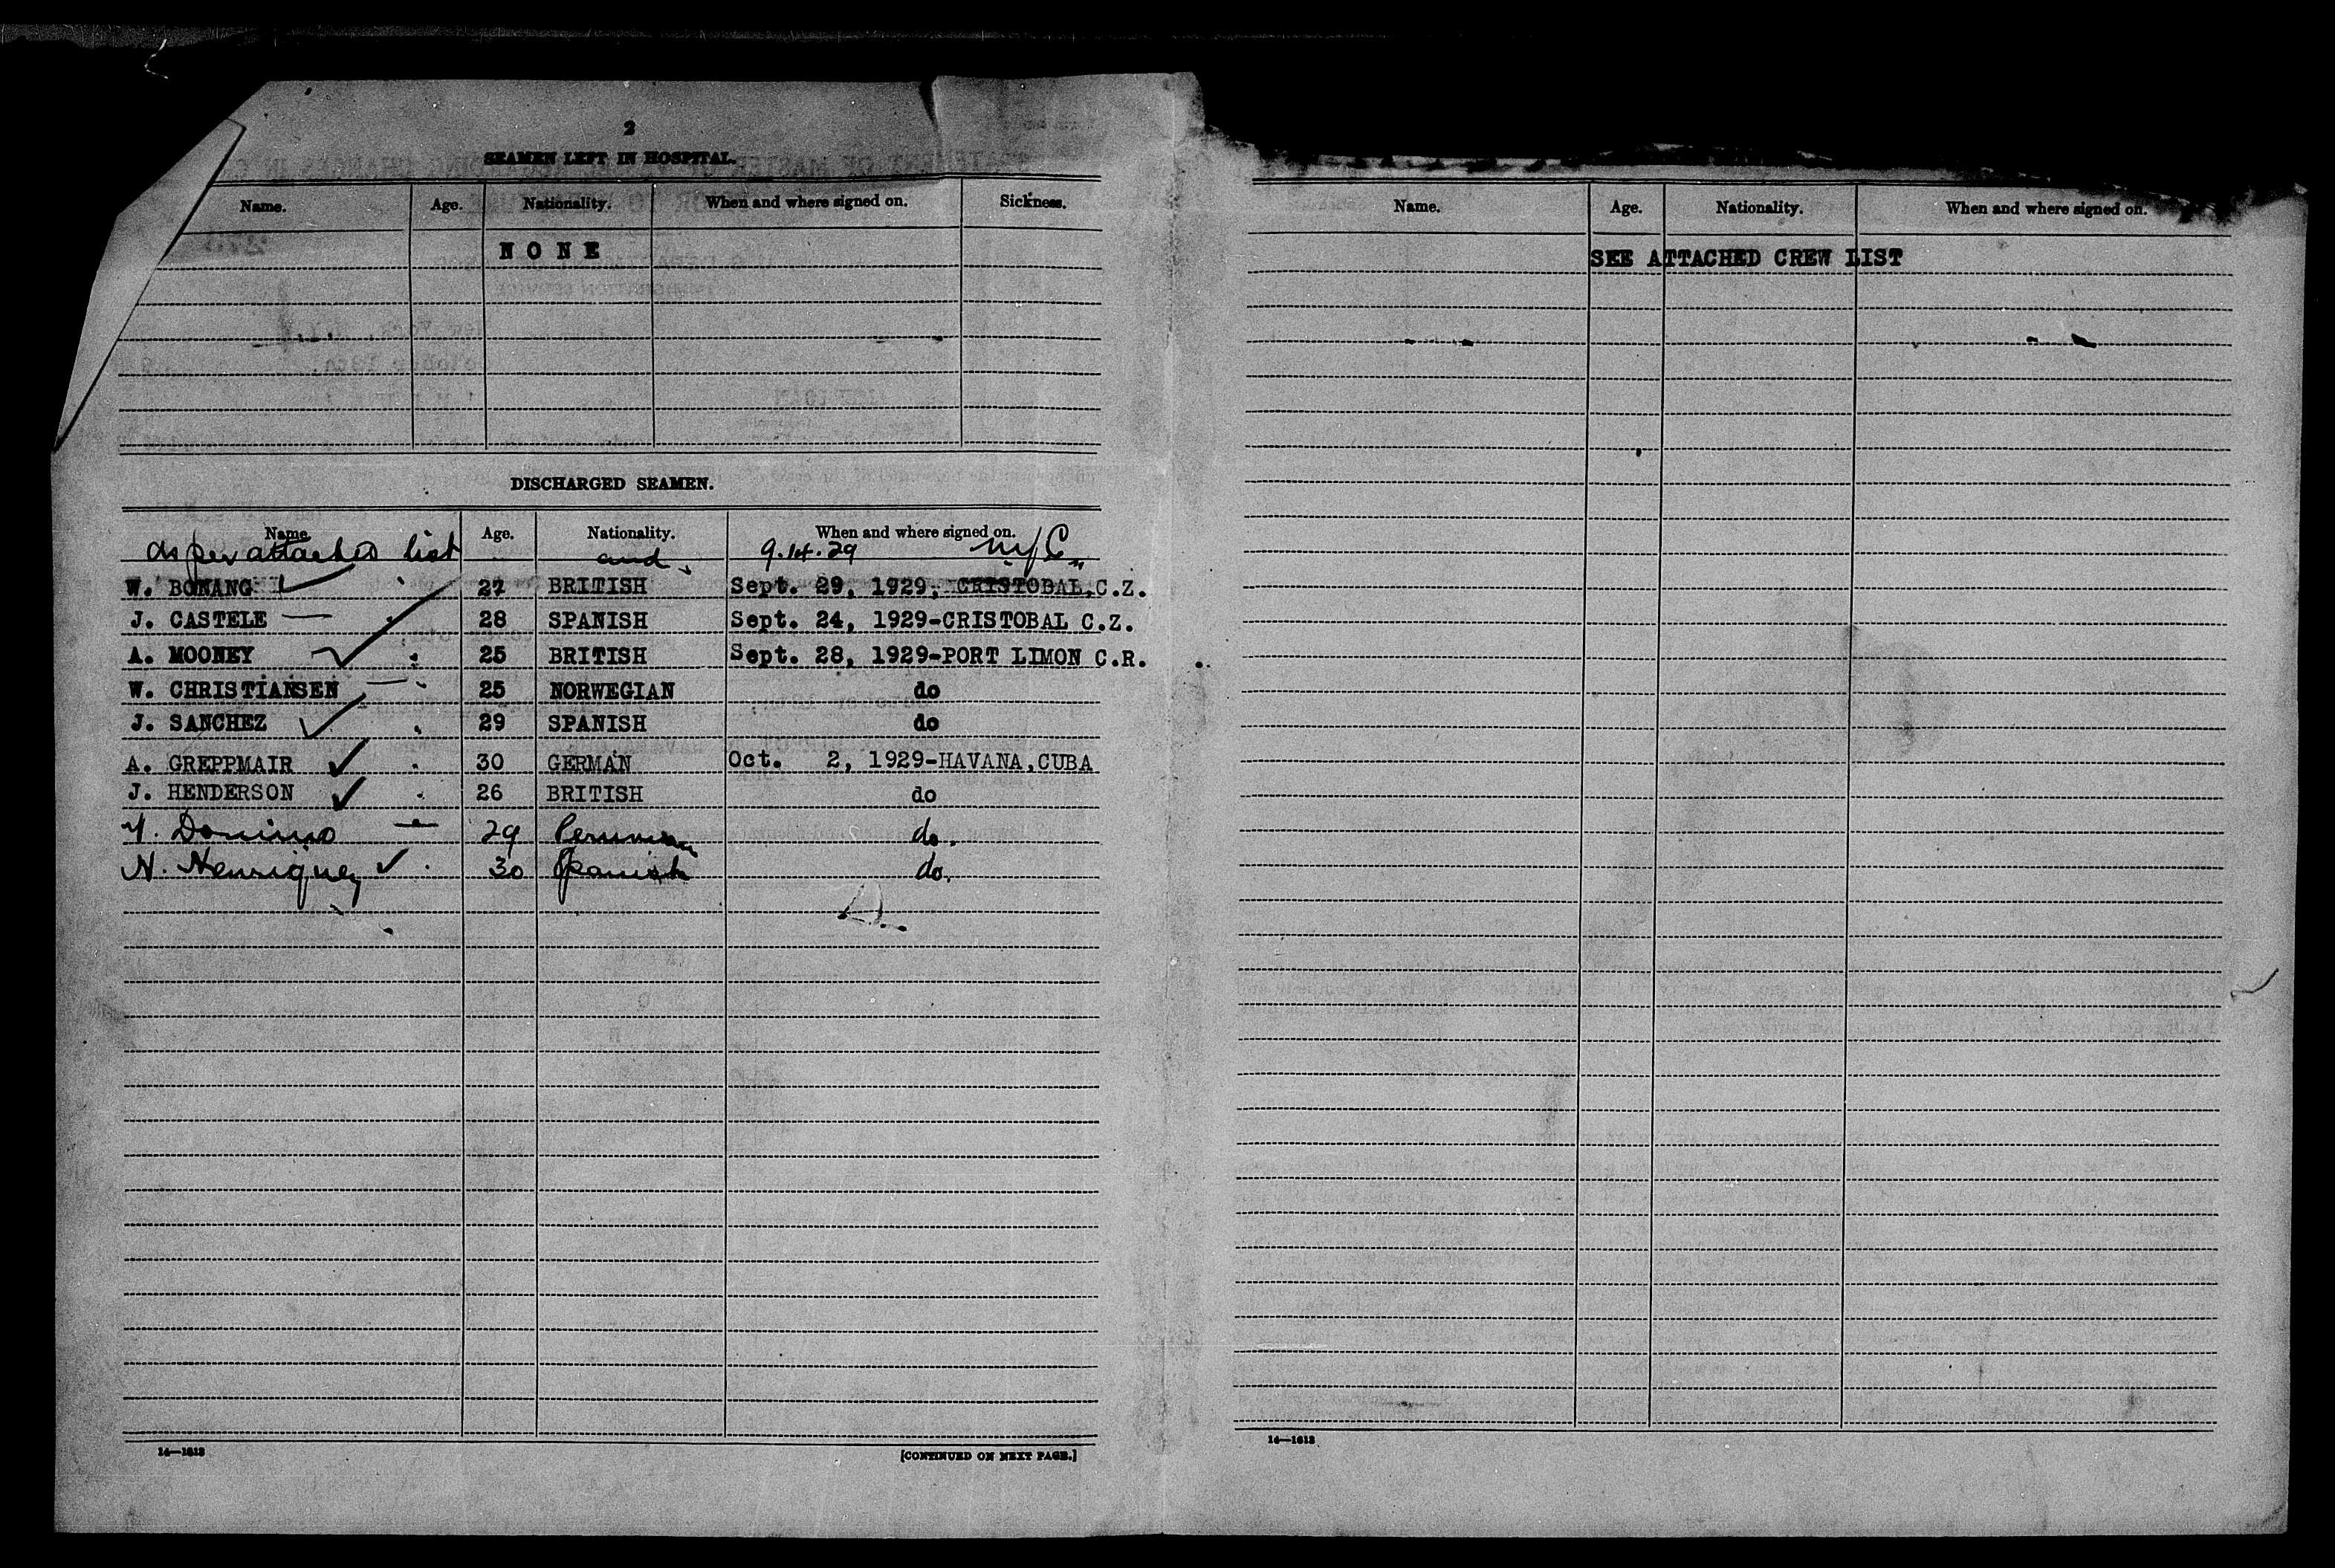 2
SEAMEN LEFT IN HOSPITAL.
Name. Age. Nationality. When and where signed on. Sickness.
NONE
DISCHARGED SEAMEN.
Name Age. Nationality. When and where signed on.
As per attached list and 9.14.29 NYC
W. BONANG 27 BRITISH Sept. 29, 1929, CRISTOBAL, C.Z.
J. CASTELE 28 SPANISH Sept. 24, 1929-CRISTOBAL C.Z.
A. MOONEY 25 BRITISH Sept. 28, 1929-PORT LIMON C.R.
W. CHRISTIANSEN 25 NORWEGIAN do
J. SANCHEZ 29 SPANISH do
A. GREPPMAIR 30 GERMAN Oct. 2, 1929-HAVANA, CUBA
J. HENDERSON 26 BRITISH do
Domino 29 Peruvian do.
N. Henriquez 30 Spanish do.
14—1613
[CONTINUED ON NEXT PAGE.]
Name. Age. Nationality. When and where signed on.
SEE ATTACHED CREW LIST
14—1613